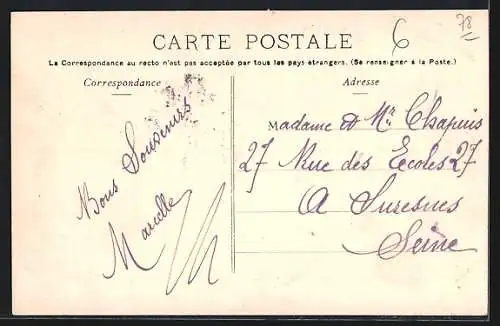 78
6
CARTE POSTALE
La Correspondance au recto n'est pas acceptée par tous les pays étrangers. (Se renseigner à la Poste.)
Correspondance
Bons Souvenirs
Marcelle
Adresse
Madame et Mr Chapuis
27 Rue des Ecoles 27
A Suresnes
Seine